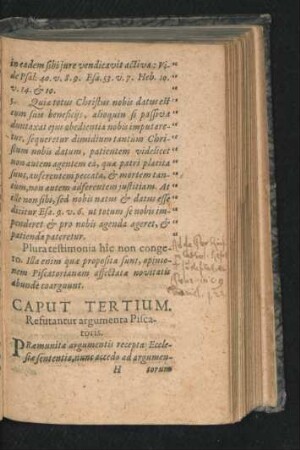 in eadem sibi jure vendicavit activa: Vi-
de Psal. 40. v. 8. 9. Esa. 53. v. 7. Heb. 10.
v. 14. & 10.
5. Quia totus Christus nobis datus est
cum suis beneficijs, alioquin si passiva
duntaxat ejus obedientia nobis imputare-
tur, sequeretur dimidium tantùm Chri-
stum nobis datum, patientem videlicet
non autem agentem ea, quæ patri placita
sunt, auferentem peccata, & mortem tan-
tum, non autem adferentem justitiam. At
ille non sibi, sed nobis natus & datus esse
dicitur Esa. 9. v. 6. ut totum se nobis im-
penderet & pro nobis agenda ageret, &
patienda pateretur.
Plura testimonia hîc non conge-
ro. Illa enim quæ proposita sunt, opinio-
nem Piscatorianam affectatæ novitatis
abundè coarguunt.
CAPUT TERTIUM.
Refutantur argumenta Pisca-
toris.
PRæmunita argumentis recepta Eccle-
siæ sententia, nunc accedo ad argumen-
H torum